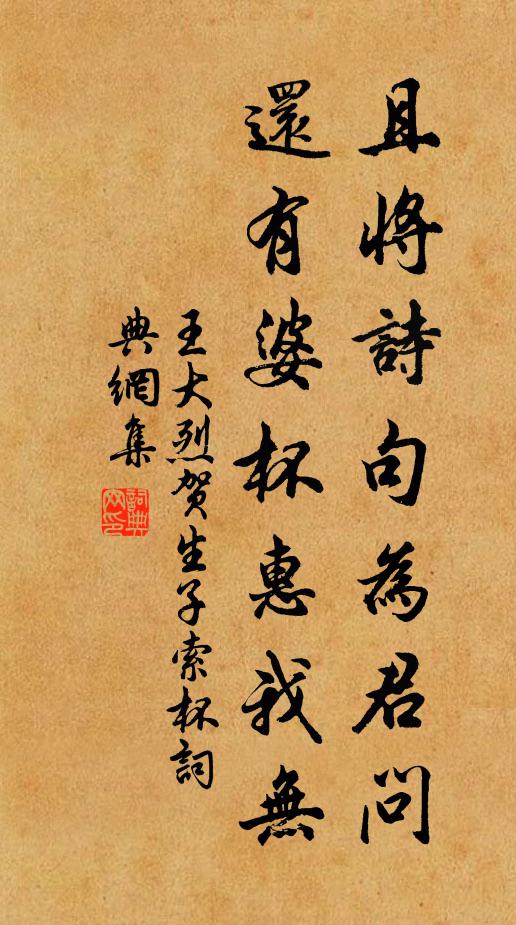 且將詩句為君問
還有婆杯惠我無
王大烈賀生子索杯詞
典網集
詞典網印